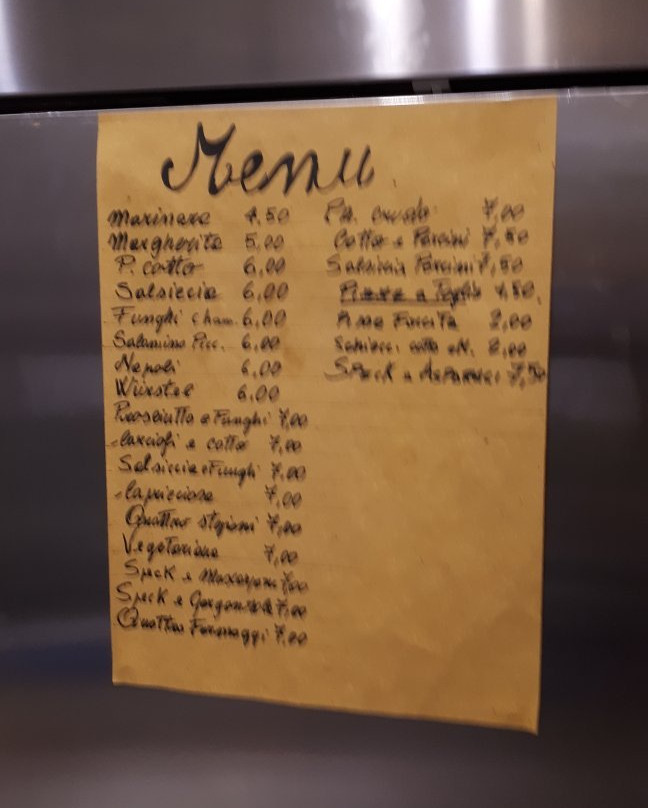 Menu
Marinara 4,50
Margherita 5,00
P. cotto 6,00
Salsiccia 6,00
Funghi Cham. 6,00
Salamino Picc. 6,00
Napoli 6,00
Würstel 6,00
Prosciutto e Funghi 7,00
Carciofi e cotto 7,00
Salsiccia e Funghi 7,00
Capricciosa 7,00
Quattro stagioni 7,00
Vegetariana 7,00
Speck e Mascarpone 7,00
Speck e Gorgonzola 7,00
Quattro Formaggi 7,00
P.A. crudo 7,00
Cotto e Porcini 7,50
Salsiccia Porcini 7,50
4,50
Farcita 2,00
cotto 2,00
Speck e Asparagi 7,50